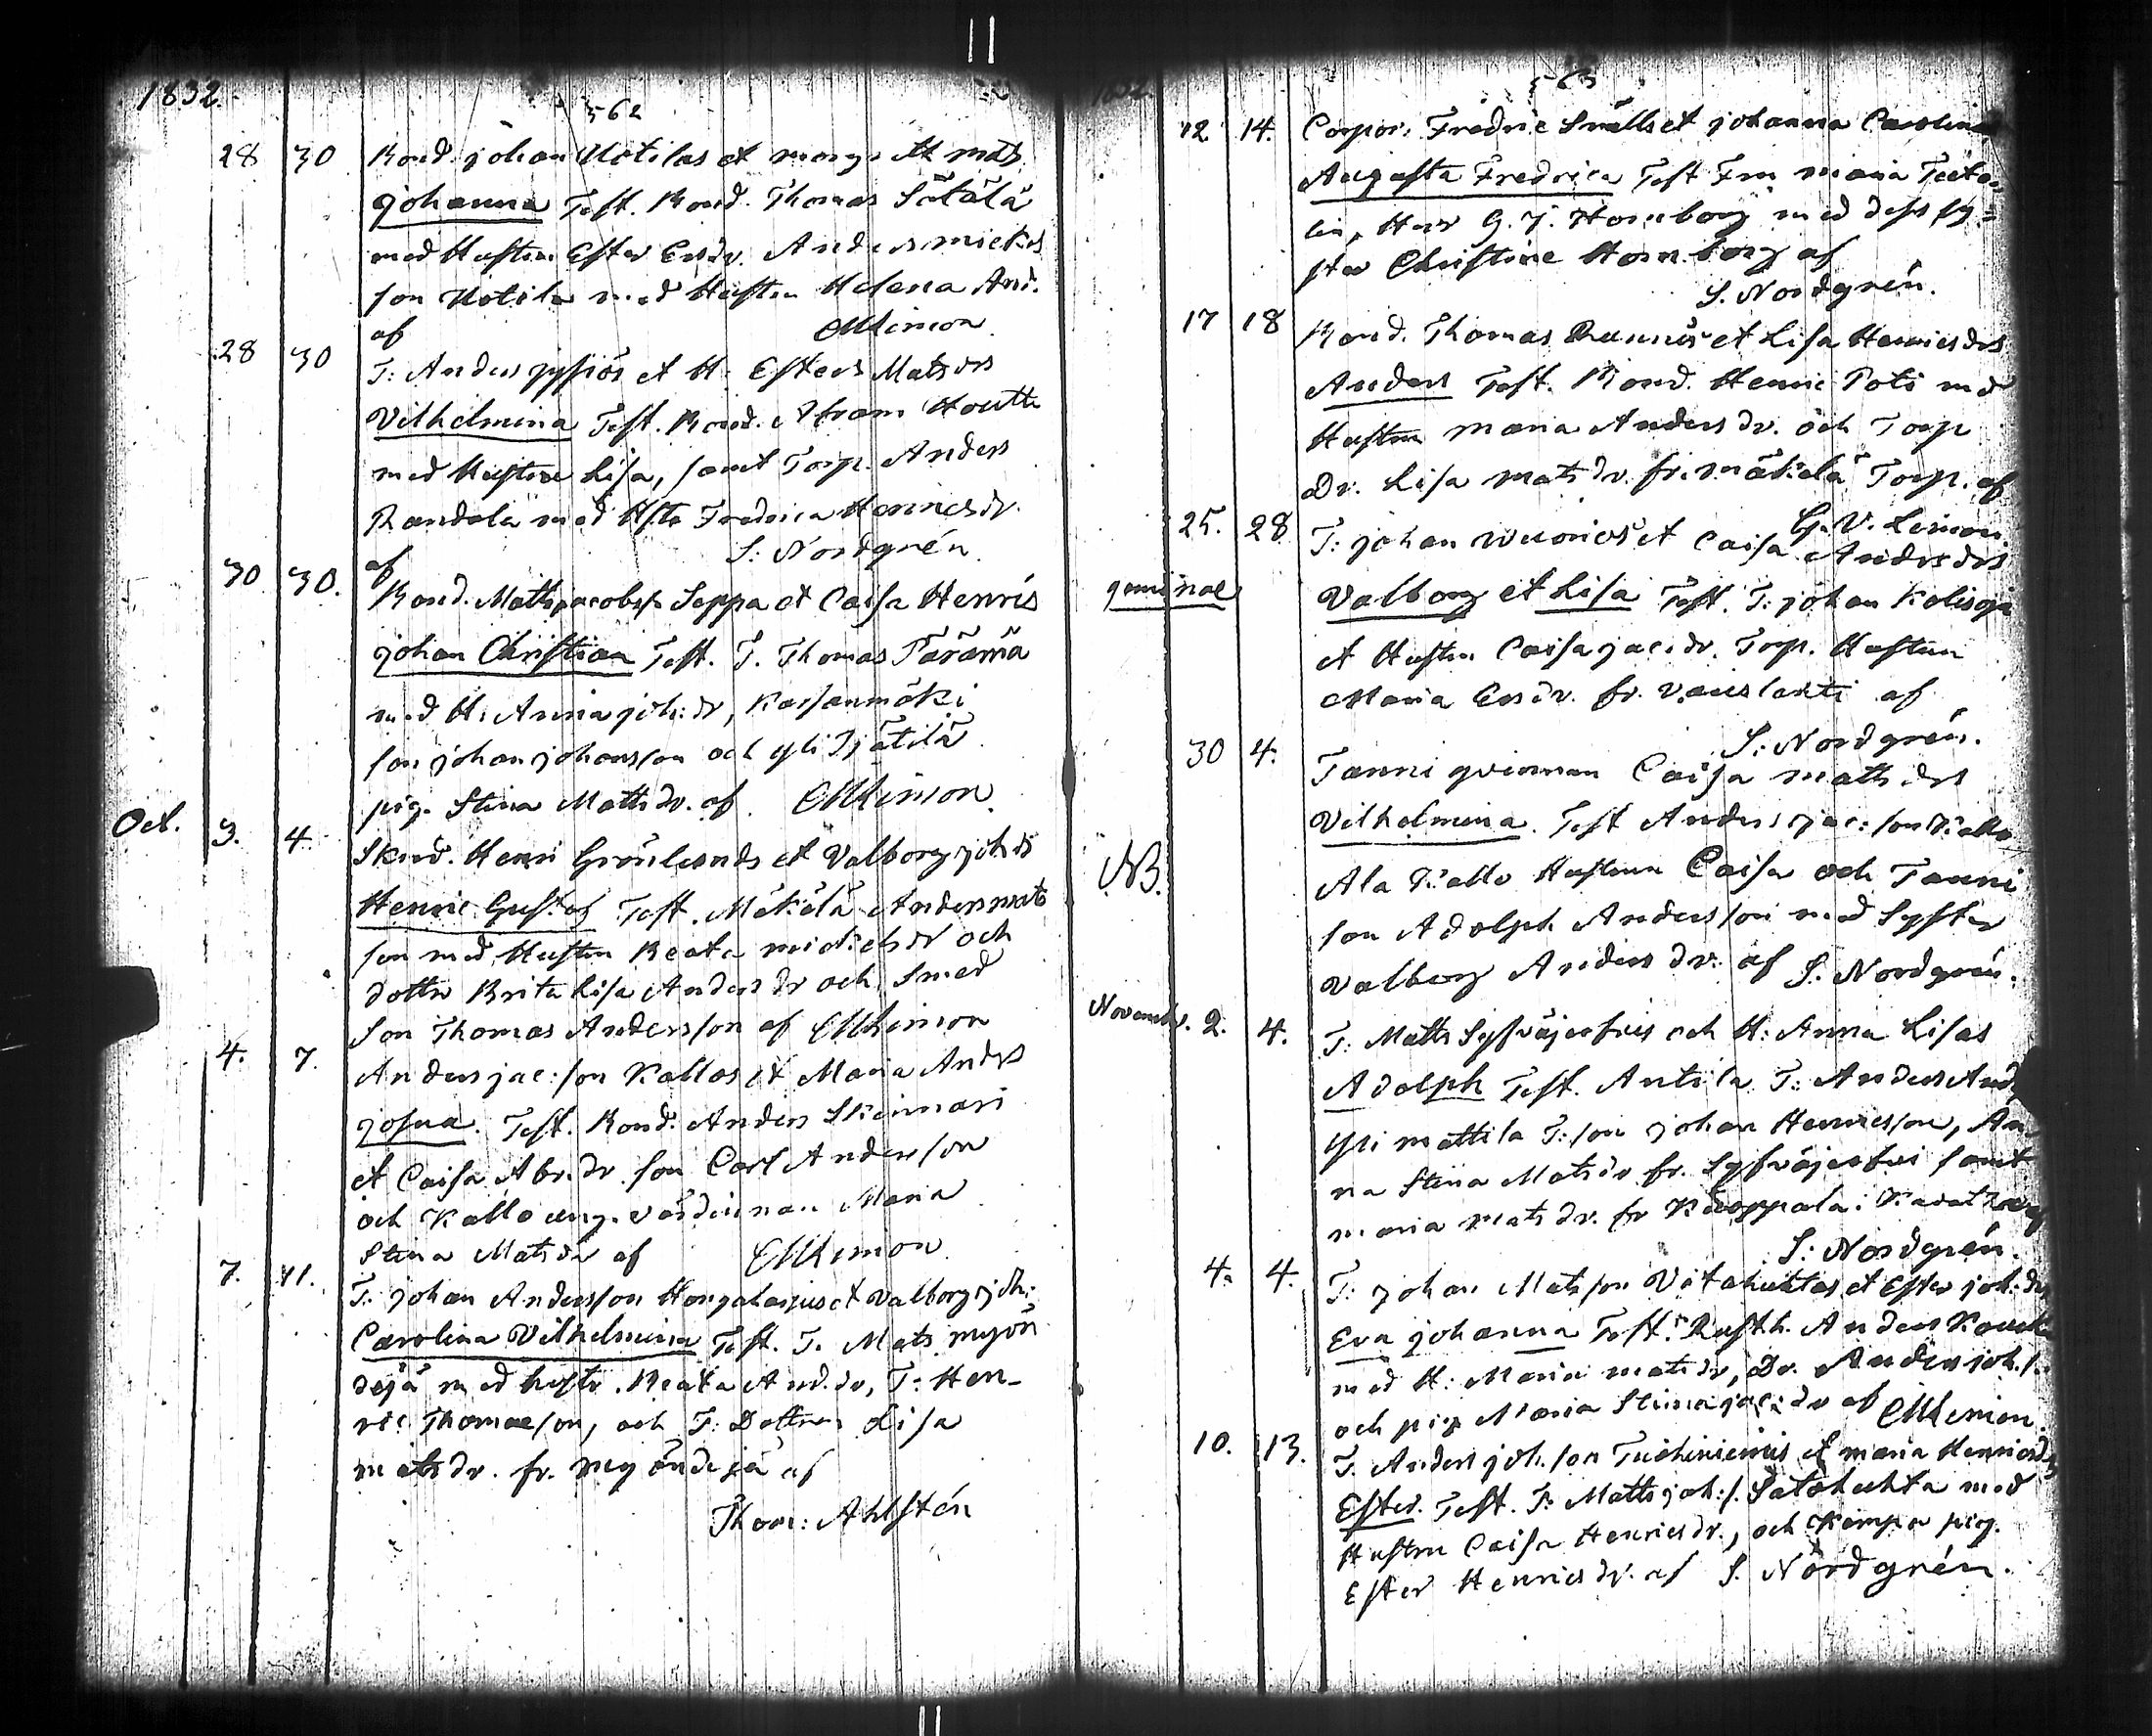 1832.
562
28 30 Bond. johan Uotilas et marg: ett mats
johanna Test. Bond. Thomas Sätälä
med Hustru Ester Ersdr. Anders mickels
son Uotila med Hustru Helena And.
af CMLimon
28 30 T: Anders jysiös et H: Esters Mats drs
Vilhelmina Test. Bond. Abram Houtti
med Hustru Lisa, samt Torp. Anders
Randala med Hstr Fredrica Henricsdr.
af S: Nordgrén
30 30. Bond. Matts jacobss. Seppa et Caisa Henrics
johan Christian Test. T. Thomas Päramä
med H: Anna joh: dr, Kassanmäki
son johan johansson och yli Tjätilä
pig. Stina Matts dr. af CMLimon.
Oct. 3. 4. Skrd. Henri Grönlunds et Valborg joh ds
Henric Gustaf Test. Mäkelä Anders mats
son med Hustru Beata mickels dr och
dotter Brita Lisa Anders dr och Smed
Son Thomas Andersson af CMLimon
4. 7. Anders jac: son Kallas et Maria Anders
josua. Test. Bond. Anders Skinnari
et Caisa Abr. dr. son Carl Andersson
och Kallo ung. värdinnan Maria
Stina Mats dr af CMLimon
7. 11. T: johan Andersson Hongaharjus et Valborg joh:
Carolina Vilhelmina Test. T. Mats myön
dejä med hustr. Beata And. dr, T: Hen-
ric Thomasson, och T: Dottren Lisa
mats dr. fr. myöndejä af
Thom: Ahlstén
1832
563
12 14. Corpor. Fredric Snälls et johanna Carolina
Augusta Fredrica Test Fru maria
lin, Herr G. J. Hornborg med dess sy-
ster Christine Hornborg af
S. Nordgrén.
17 18 Bond. Thomas Rannus et Lisa Henrics drs
Anders Test. Bond. Henric Poti med
Hustru maria Anders dr. och Torp
Dr. Lisa mats dr. fr. mäkelä Torp. af
G. V. Limon
25. 28 T: johan et Caisa Anders drs
geminae Valborg et Lisa Test. T: johan Kalisoja
et Hustru Caisa jac. dr. Torp. Hustrun
Maria Ersdr. fr. vauslahti af
S: Nordgrén.
30 4. Tanni qvinnan Caisa matts drs
Vilhelmina. Test Anders jac: son Kallo
NB. Ala Kallo Hustrun Caisa och Tanni
son Adolph Andersson med Syster
Valborg Anders dr: af S. Nordgrén.
November. 2. 4. T: Matts Syfväjerfvis och H: Anna Lisas
Adolph Test. Antila T: Anders And
Yli mattila T: son johan Henricsson, An
na Stina Mats dr fr. Syfväjerfvi samt
maria mats dr. fr Knoppala i
S: Nordgrén.
4. 4. T: johan Matsson Vitahuhtas et Ester joh: drs
Eva johanna Test: Rusth. Anders
med H: Maria mats dr, Dr. Anders joh. s.
och pig Maria Stina jac: dr af CMLimon
10. 13. T. Anders joh. son Tuohiniemis et maria Henricsdrs
Ester. Test. T: Matts joh: s. Satohuhta med
Hustru Caisa Henricsdr., och Kämpa pig.
Ester Henricsdr. af S. Nordgrén.